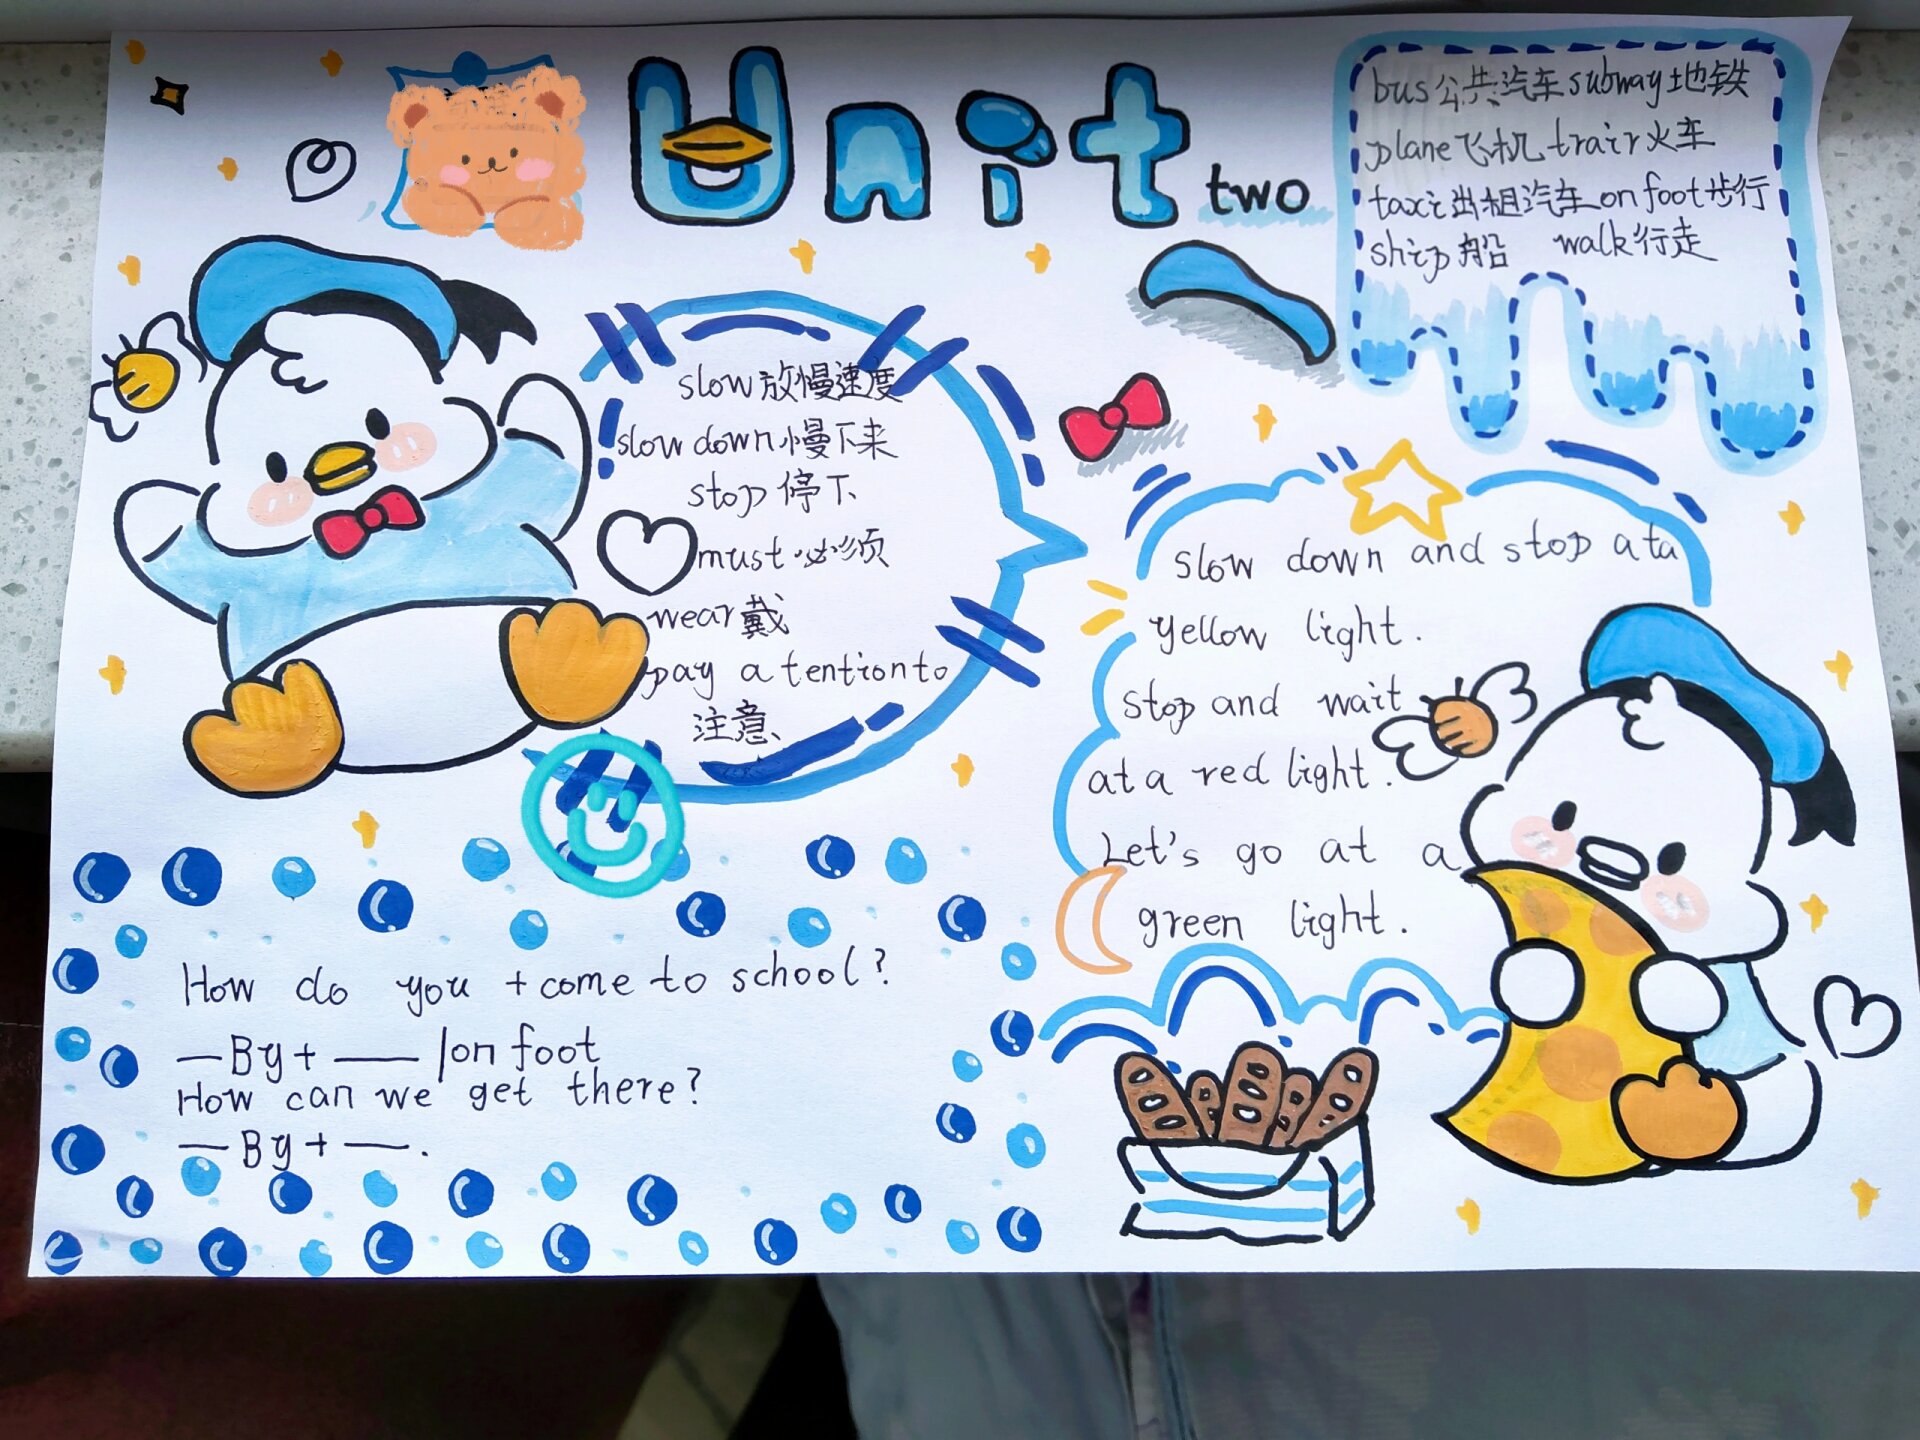 Unit two
bus公共汽车subway地铁
plane飞机 train火车
taxi出租汽车on foot步行
ship船 walk行走
slow放慢速度
slow down慢下来
stop停下
must必须
wear戴
pay a tention to
注意
slow down and stop at a
yellow light.
stop and wait
at a red light.
Let's go at a
green light.
How do you + come to school?
—By + —— /on foot
How can we get there?
—By + ——.